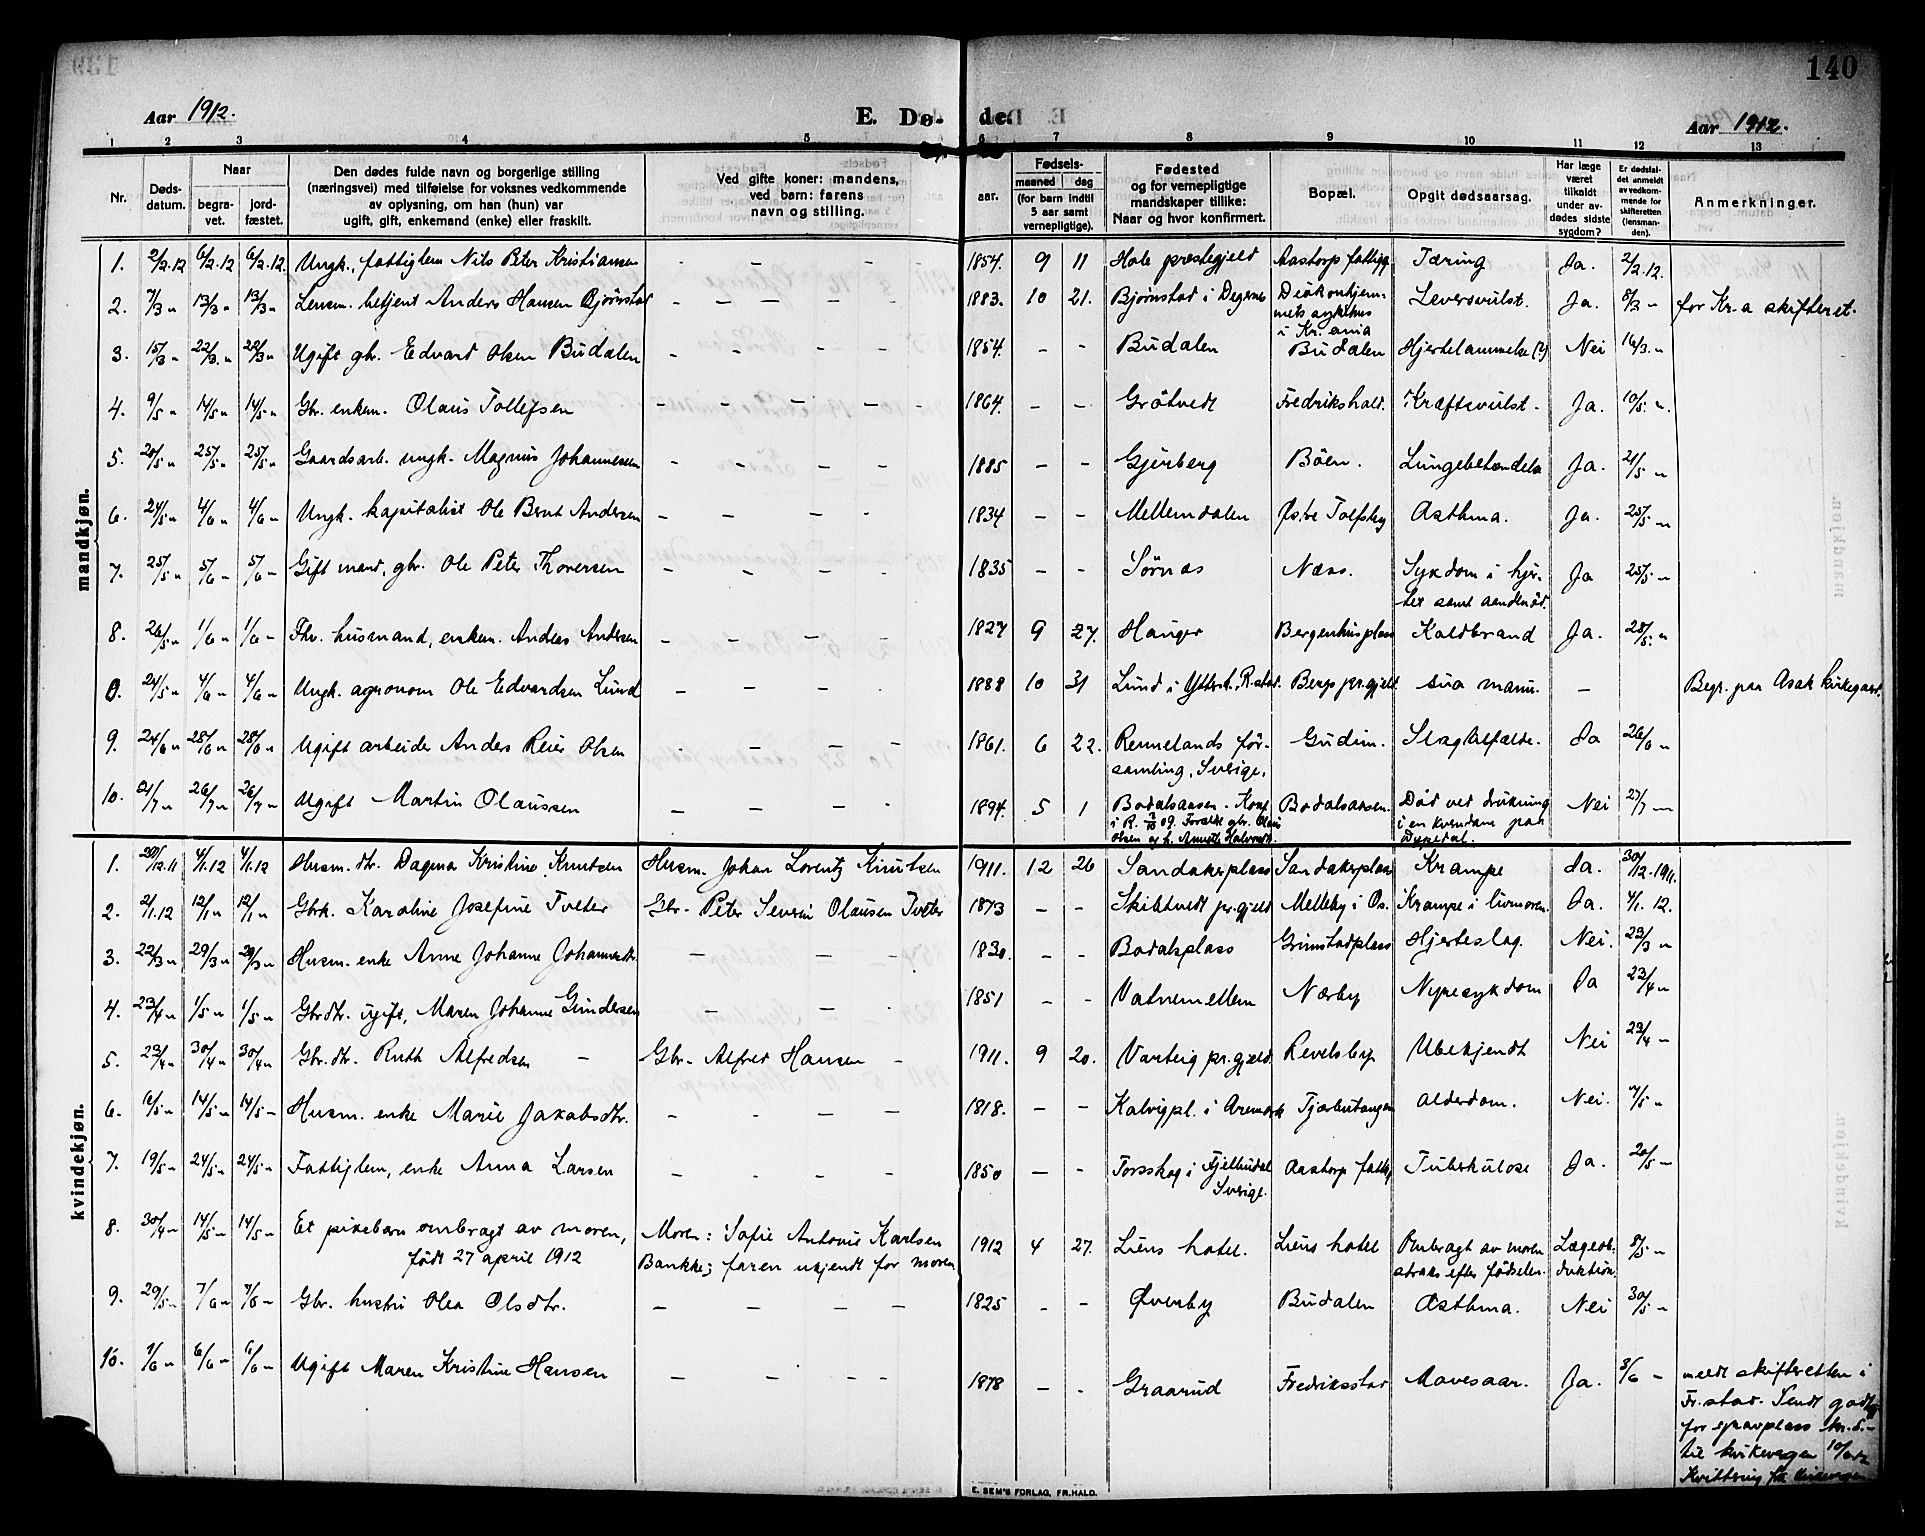 140
Aar 1912.
E. Dø- de.
Aar 1912.
1 2 3 4 5 6 7 8 9 10 11 12 13
Nr.
Døds-
datum.
Naar
begra-
vet.
jord-
fæstet.
Den dødes fulde navn og borgerlige stilling
(næringsvei) med tilføielse for voksnes vedkommende
av oplysning, om han (hun) var
ugift, gift, enkemand (enke) eller fraskilt.
Ved gifte koner: mandens,
ved barn: farens
navn og stilling.
Fødsels-
aar.
maaned dag
(for barn indtil
5 aar samt
vernepligtige).
Fødested
og for vernepligtige
mandskaper tillike:
Naar og hvor konfirmert.
Bopæl.
Opgit dødsaarsag.
Har læge
været
tilkaldt
under av-
dødes sidste
sygdom?
Er dødsfal-
det anmeldt
av vedkom-
mende for
skifteretten
(lensman-
den).
Anmerkninger.
mandkjøn.
1. 2/2.12 6/2.12 6/2.12. Ungk., fattiglem Nils Peter Kristiansen - - - - 1854. 9 11 Hole prestegjeld Aastorp fattigg. Tæring Ja. 2/2.12.
2. 7/3 " 13/3 " 13/3 " Lensm. betjent Anders Hansen Bjørnstad - - - - - 1883. 10 21. Bjørnstad i Degernes Diakonhjem- Leversvulst. Ja. 8/3 - for Kr.a skifteret.
mets sykehus
i Kr.ania
3. 15/3 " 22/3. " 22/3 " Ugift gbr. Edvard Olsen Budalen - - - - 1854. - - Budalen Budalen Hjertelammelse (?) Nei 16/3. "
4. 9/5 " 14/5 " 14/5 " Gbr. enkem. Olaus Tollefsen - - - - - 1864. - - Gråtvedt Fredrikshald. Kræftsvulst - Ja. 10/5. ".
5. 20/5 " 25/5. " 25/5. " Gaardsarb. ungk. Magnus Johannesen - - - - 1885 - - Gjerberg Bøen. Lungebetændelse Ja. 21/5 -
6. 24/5 " 4/6 " 4/6 - Ungk. kapitalist Ole Bernt Andersen - - - - 1834 - - Mellemdalen Østre Tolfsby Asthma. Ja. 25/5 -
7. 25/5 " 5/6 - 5/6 - Gift mand, gbr. Ole Peter Thoresen - - - - 1835 - - Sørnes Næss. Sykdom i hjer- Ja 25/5 -
tet samt aandenød.
8. 26/5 " 1/6 - 1/6 - Fhv. husmand, enkem. Anders Andersen - - - - 1827 9 27. Hauger Bergenhusplass Koldbrand Ja. 28/5. "
0. 24/5 " 4/6 - 4/6 - Ungk. agronom Ole Edvardsen Lund - - - - 1888 10 31 Lund i Ytterb., R.stad. Bergs pr.gjeld - Begr. paa Asak kirkegaard.
9. 24/6 " 28/6 " 28/6 " Ugift arbeider Anders Reier Olsen - - - - 1861. 6 22. Rennelands för- Gudim. Slagtilfælde. Ja 26/6 -
samling, Sverige.
10. 21/7 " 26/7 " 26/7 - Ugift Martin Olaussen - - - - 1894. 5 1 Bodalsaasen. Konf. Bodalsaasen. Død ved drukning Nei 27/7 -
i R. 09. Forældre gbr. Olaus i en kverndam paa
Olsen og h. Annette Halvorsdt. Dypedal.
kvindekjøn.
1. 30/12.11 4/1.12 4/1.12 Husm. dtr. Dagma Kristine Knutsen Husm. Johan Lorentz Knutsen 1911. 12 26 Sandakerplass Sandakerplass Krampe Ja. 30/12.1911.
2. 2/1.12 12/1 " 12/1 " Gbrk. Karoline Josefine Tveter Gbr. Peter Severin Olausen Tveter 1873 - - Skibtvedt pr.gjeld Melleby i Os. Krampe i livmoren. Ja. 4/1. 12.
3. 22/3 " 29/3 " 29/3 " Husm. enke Anne Johanne Johannesdtr. - - - 1830. - - Bodalsplass Grimstadplass Hjerteslag. Nei. 23/3 "
4. 23/4 " 1/5 " 1/5 " Gbrdtr. ugift, Maren Johanne Gundersen - - - 1851 - - Vatnemellem Nærby Nyresykdom Ja 23/4 -
5. 23/4 " 30/4 " 30/4 " Gbr. dtr. Ruth Alfredsen - Gbr. Alfred Hansen - 1911. 9 20. Varteig pr.gjeld Revelsby Ubekjendt Nei 23/4 -
6. 6/5 " 14/5 " 14/5 - Husm. enke Marie Jakobsdtr. - - - - 1818. - - Kalvigpl. i Aremark Tjærbutangen Alderdom. Nei. 7/5 "
7. 19/5 " 24/5 " 24/5 - Fattiglem, enke Anna Larsen - - - - 1850 - - Torsskog i Fjellbudal Aastorp fattigg. Tuberkulose Ja. 20/5 -
Sverige.
8. 30/4 " 14/5 - 14/5 - Et pikebarn ombragt av moren, Moren: Sofie Antonie Karlsen 1912 4 27. Liens hotel. Liens hotel Ombragt av moren Lægeob- 8/5 -
født 27 april 1912 Bankke; faren ukjendt for moren straks efter fødselen. duktion.
9. 29/5 " 7/6 " 7/6 - Gbr. hustru Olea Olsdtr. - - - - 1825 - - Øverby Budalen Asthma. Nei 30/5 -
10. 1/6 " 6/6 - 6/6 - Ugift Maren Kristine Hansen - - - - 1878 - - Graarud Fredriksstad Mavesaar. Ja. 3/6 - meldt skifteretten i
Fr.stad. Sendt
for gravplass kr. 5.-
til kirkevergen
Kvittring fra
E. SEM'S FORLAG, FR.HALD.